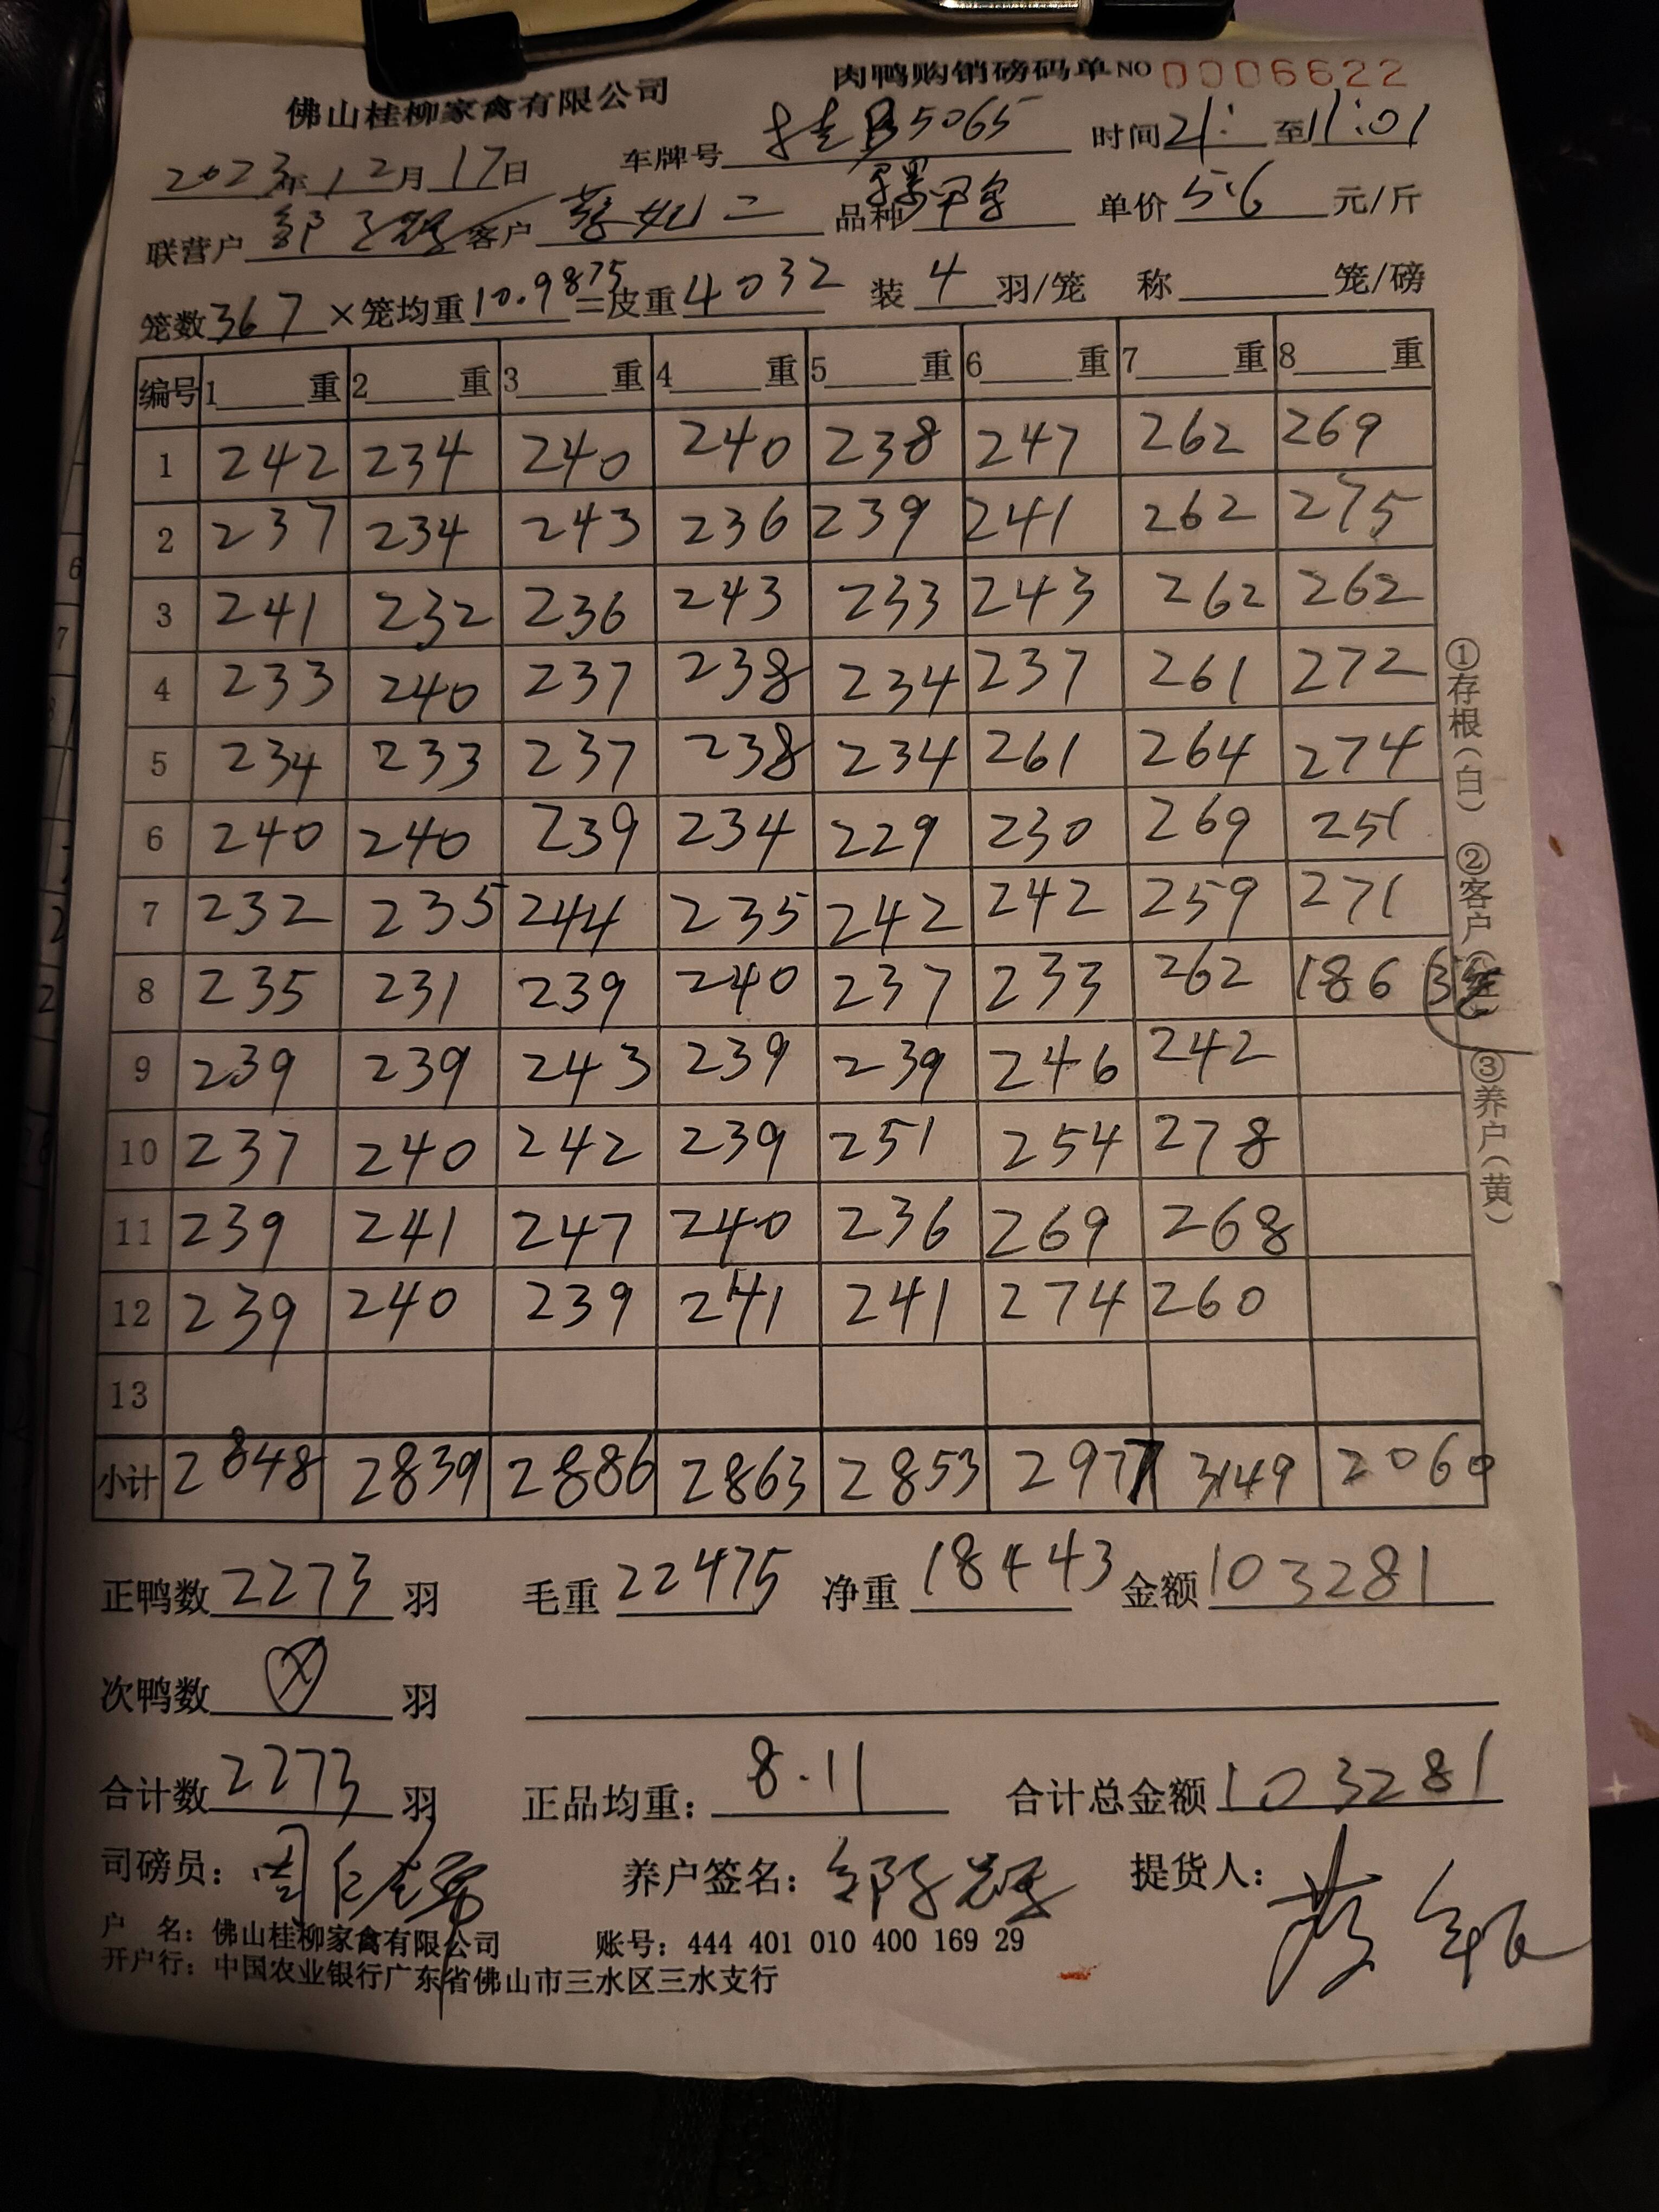 肉鸭购销磅码单 NO 0006622
佛山桂柳家禽有限公司
2023年12月17日 车牌号 5065 时间21: 至11:01
联营户 邹 客户 二 品种 单价5.6元/斤
笼数367×笼均重10.9875=皮重4032 装4羽/笼 称 笼/磅
编号 1 重 2 重 3 重 4 重 5 重 6 重 7 重 8 重
1 242 234 240 240 238 247 262 269
2 237 234 243 236 239 241 262 275
3 241 232 236 243 233 243 262 262
4 233 240 237 238 234 237 261 272
5 234 233 237 238 234 261 264 274
6 240 240 239 234 229 230 269 251
7 232 235 244 235 242 242 259 271
8 235 231 239 240 237 233 262 186
9 239 239 243 239 239 246 242
10 237 240 242 239 251 254 278
11 239 241 247 240 236 269 268
12 239 240 239 241 241 274 260
13
小计 2848 2839 2886 2863 2853 2977 3149 2060
①存根(白) ②客户 ③养户(黄)
正鸭数2273羽 毛重22475 净重18443 金额103281
次鸭数 羽
合计数2273羽 正品均重：8.11 合计总金额103281
司磅员：周 养户签名：邹 提货人：
户 名：佛山桂柳家禽有限公司 账号：444 401 010 400 169 29
开户行：中国农业银行广东省佛山市三水区三水支行